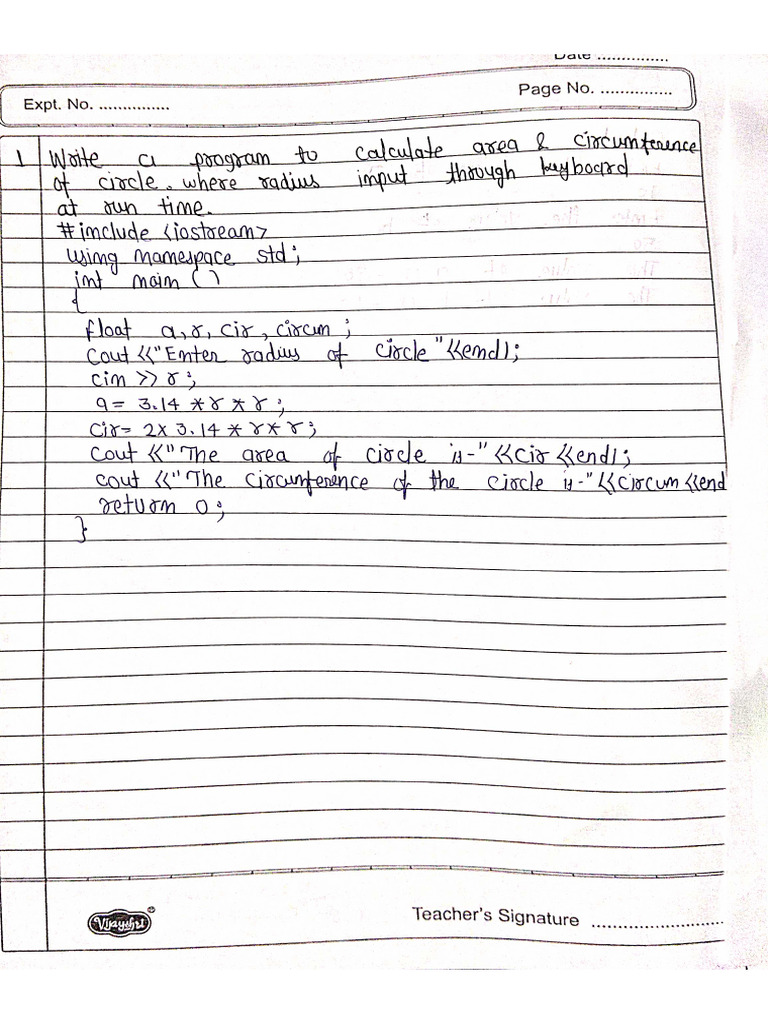 Date ...............
Page No. ...............
Expt. No. ...............
1 Write a program to calculate area & circumference
of circle. where radius input through keyboard
at run time.
#include <iostream>
using namespace std;
int main ()
{
float a, r, cir, circum ;
Cout <<"Enter radius of circle"<<endl;
cin >> r ;
a = 3.14 * r * r ;
Cir= 2x 3.14 * r * r ;
Cout <<"The area of circle is-"<<Cir <<endl;
cout <<"The circumference of the circle is-"<<circum <<end
return 0 ;
}
Vijayshri
Teacher's Signature .........................